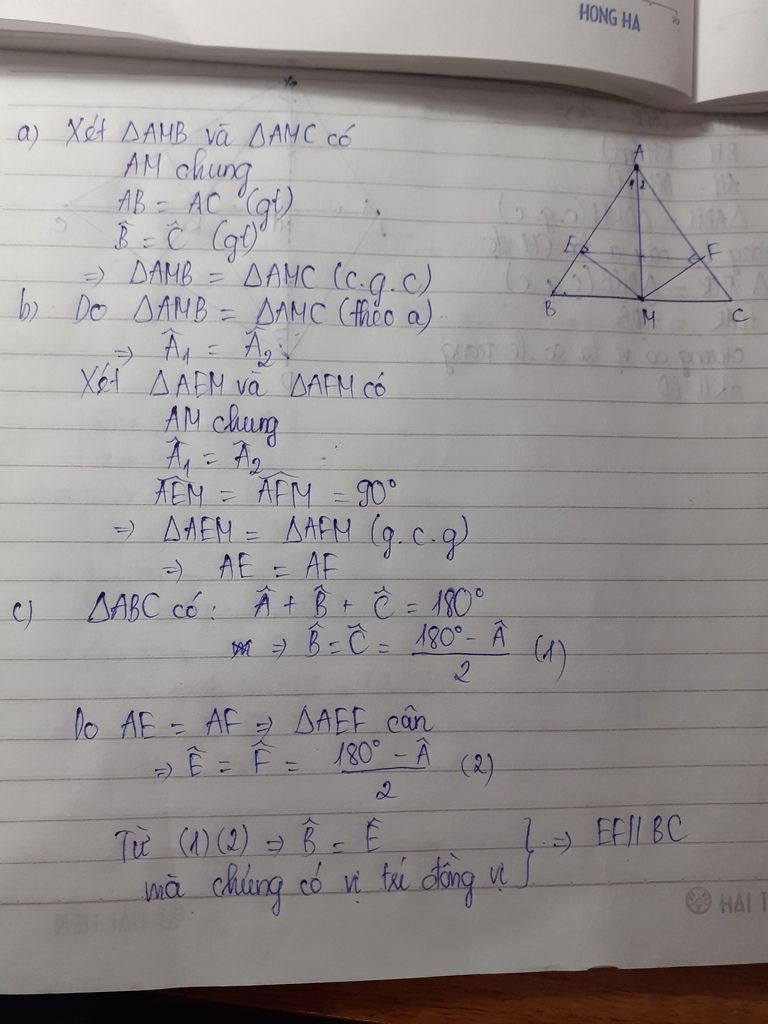 HONG HA
a) Xét ΔAMB và ΔAMC có
AM chung
AB = AC (gt)
B̂ = Ĉ (gt)
⇒ ΔAMB = ΔAMC (c.g.c)
b) Do ΔAMB = ΔAMC (theo a)
⇒ Â₁ = Â₂
Xét ΔAEM và ΔAFM có
AM chung
Â₁ = Â₂
AEM = AFM = 90°
⇒ ΔAEM = ΔAFM (g.c.g)
⇒ AE = AF
c) ΔABC có: Â + B̂ + Ĉ = 180°
⇒ B̂ = Ĉ = (180° - Â)/2 (1)
Do AE = AF ⇒ ΔAEF cân
⇒ Ê = F̂ = (180° - Â)/2 (2)
Từ (1)(2) ⇒ B̂ = Ê
mà chúng có vị trí đồng vị } ⇒ EF//BC
A
1 2
E F
B M C
HẢI T